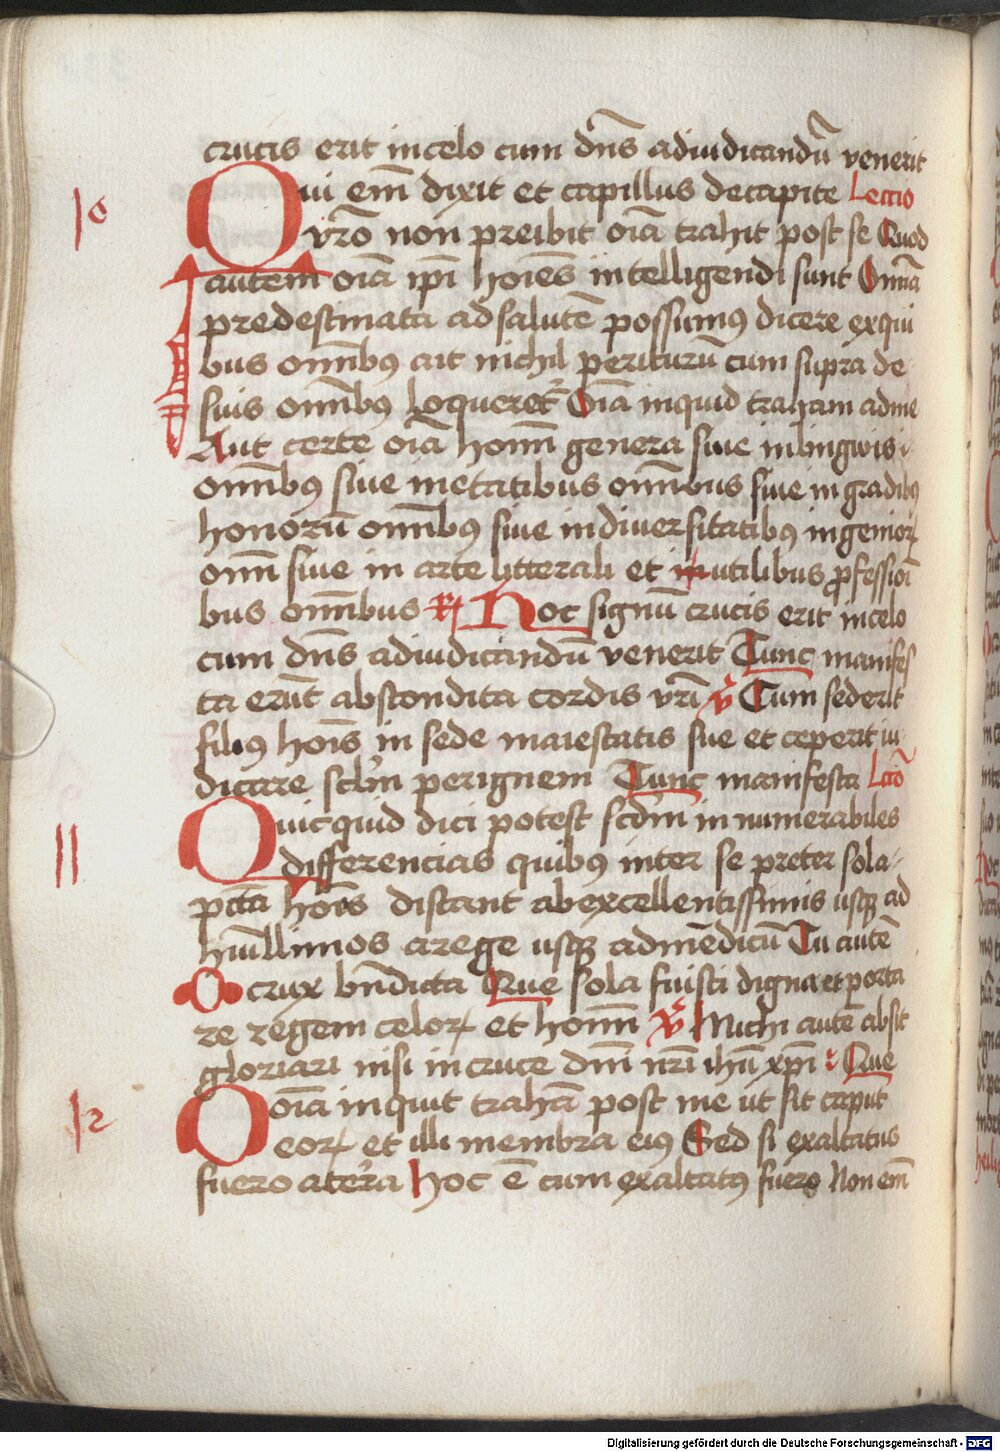 crucis erit in celo cum dn̄s ad iudicandū venerit
Qui em̄ dixit et capillus de capite Lectio
10
vr̄o non preibit oīa trahit post se Quod
autem oīa ip̄i hoīes intelligendi sunt Omīa
predestinata ad salutē possumꝰ dicere ex qui
bus omībꝰ ait nichil periturū cum supra de
suis omībꝰ loqueret᷑ Oīa inquid traham ad me
Aut certe oīa hoīm genera siue in lingwis i
omībꝰ siue in etatibus omībus siue in gradibꝰ
honorū omībꝰ siue in diuersitatibꝰ ingenioꝝ
om̄ siue in arte litterali et in utilibus ꝓfessioī
bus omībus R̸ Hoc signū crucis erit in celo
cum dn̄s ad iudicandū venerit Tunc manifes
ta erūt abscondita cordis vr̄i v̄ Cum sederit
filiꝰ hoīs in sede maiestatis sue et ceperit iu
dicare sclm̄ per ignem Tunc manifesta Lctō
11
Quicquid dici potest scd̄m innumerabiles
differencias quibꝰ inter se preter sola
pctā hoīes distant ab excellentissimis usqꝫ ad
humillimos a rege usqꝫ ad mēdicū Tu autē
O crux bn̄dicta Que sola fuisti digna et porta
re regem celoꝝ et hoīm v̄ Michi autē absit
gloriari nisi in cruce dn̄i nr̄i ih̄u xp̄i : Que
12
Ooīa inquit trahā post me ut sit caput
eoꝝ et illi membra eiꝰ Sed si exaltatus
fuero a terra hoc ē cum exaltatꝰ fuero Non em̄
Digitalisierung gefördert durch die Deutsche Forschungsgemeinschaft - DFG